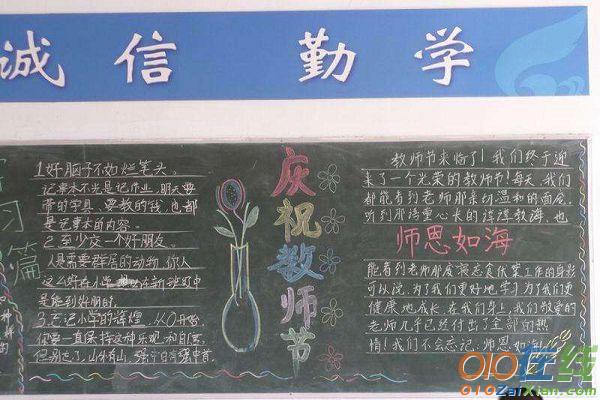 诚信 勤学
习
篇
1.好脑子不如烂笔头。
记事本不光是记作业,明天要
带的字具,要教的钱,也都
是记事本的内容。
2.至少交一个好朋友。
人是需要群居的动物,你
是能到好朋时。
3.忘记小学的辉煌,从0开始
你要一直保持这种乐观和自
山外有山,
庆祝教师节
教师节来临了!我们终于迎
来了一个光荣的教师节!每天,我们
都能看到老师那亲切温和的面容,
听到那语重心长的谆谆教诲,也
师恩如海
能看到老师那废寝忘食伏案工作的身影
可以说,为了我们更好地学习为了我们更
健康地成长,在我们身上,我们敬爱的
老师几乎已经付出了全部的热
情!我们不会忘记:师恩如海!
010在线
010ZaiXian.com